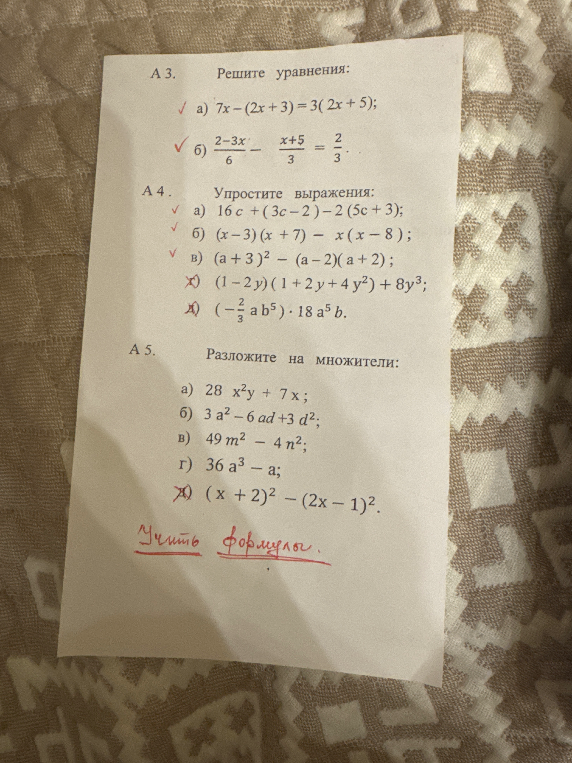 А 3. Решите уравнения:
✓ а) 7x – (2x + 3) = 3( 2x + 5);
✓ б) \frac{2−3x}{6} − \frac{x+5}{3} = \frac{2}{3}.
А 4 . Упростите выражения:
✓ а) 16 c + ( 3c – 2 ) – 2 (5c + 3);
✓ б) (x – 3) (x + 7) − x ( x – 8 ) ;
✓ в) (a + 3 )² − (a – 2)( a + 2) ;
г) (1 – 2y) ( 1 + 2 y + 4 y²) + 8y³;
д) ( − \frac{2}{3} a b⁵ ) · 18 a⁵ b.
А 5. Разложите на множители:
а) 28 x²y + 7 x ;
б) 3 a² – 6 ad +3 d²;
в) 49 m² − 4 n²;
г) 36 a³ – a;
д) ( x + 2)² − (2x − 1)².
Учить формулы.